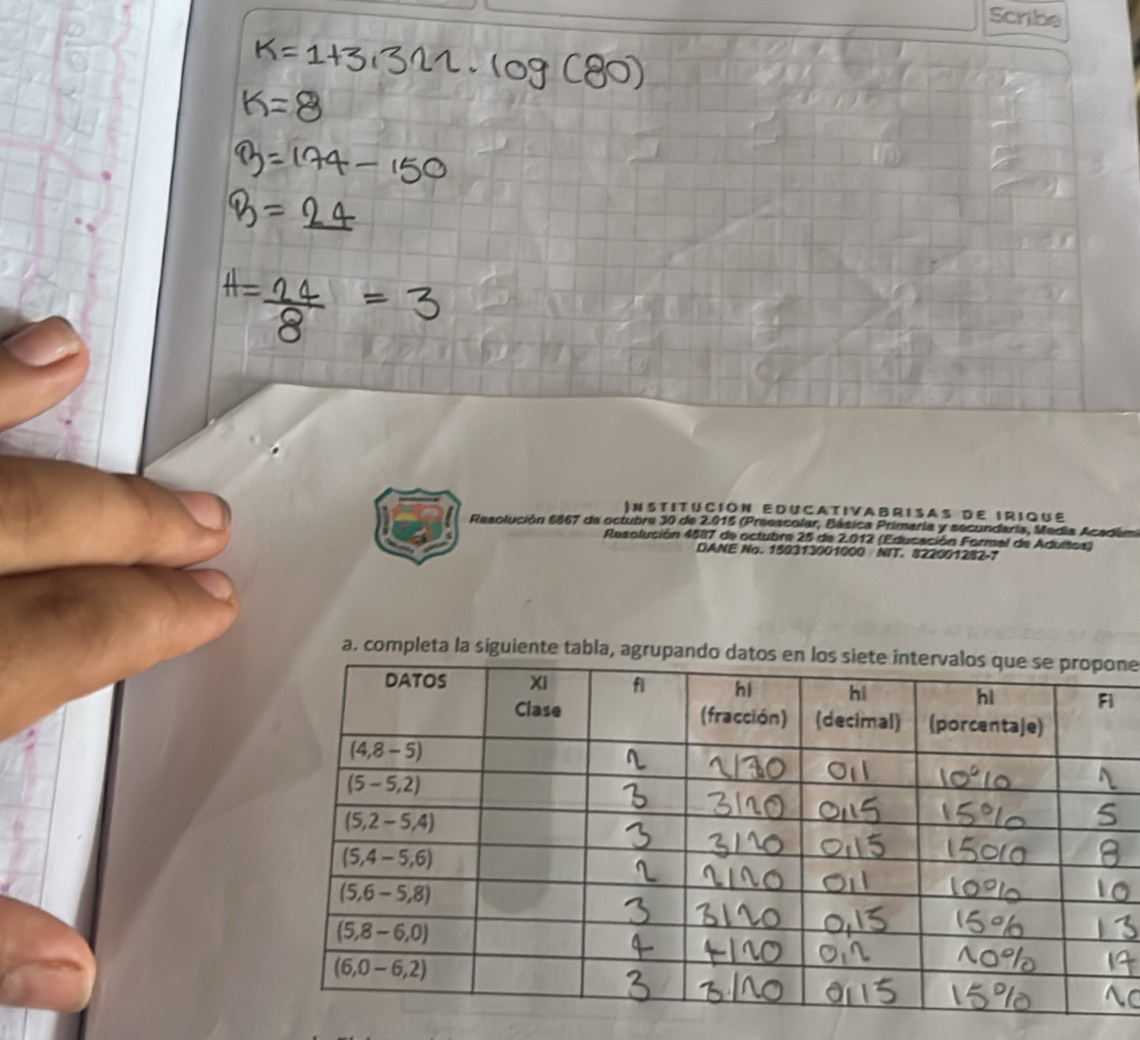 Scribe
K=1+3,322. log (80)
K=8
B=174-150
B=24
A=24/8 = 3
INSTITUCIÓN EDUCATIVA BRISAS DE IRIQUE
Resolución 6867 de octubre 30 de 2.015 (Preescolar, Básica Primaria y secundaria, Media Académi
Resolución 4587 de octubre 25 de 2.012 (Educación Formal de Adultos)
DANE No. 150313001000 NIT. 822001282-7
a. completa la siguiente tabla, agrupando datos en los siete intervalos que se propone
DATOS XI Clase fi hi (fracción) hi (decimal) hi (porcentaje) Fi
(4,8 – 5) 2 2/20 0,1 10% 2
(5 – 5,2) 3 3/20 0,15 15% 5
(5,2 – 5,4) 3 3/20 0,15 15% 8
(5,4 – 5,6) 2 2/20 0,1 10% 10
(5,6 – 5,8) 3 3/20 0,15 15% 13
(5,8 – 6,0) 4 4/20 0,2 20% 17
(6,0 – 6,2) 3 3/20 0,15 15% 20